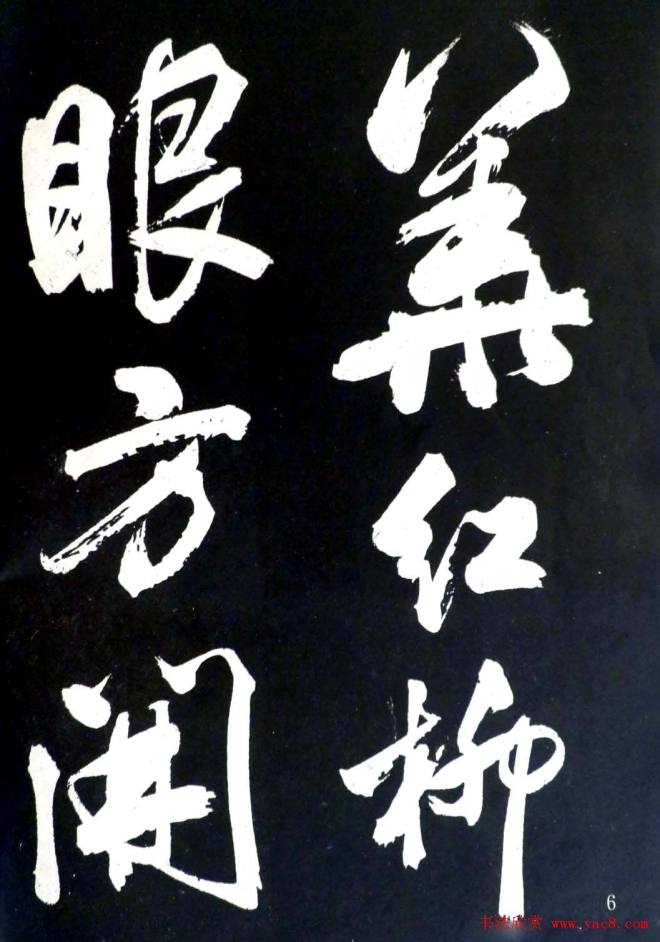 華紅柳
眼方開
6
书法欣赏 www.yac8.com